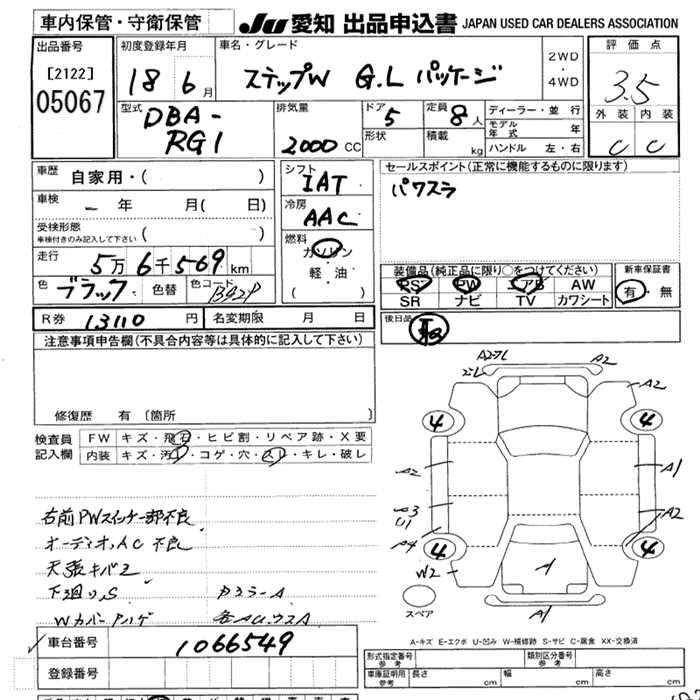 車内保管・守衛保管
JU 愛知 出品申込書 JAPAN USED CAR DEALERS ASSOCIATION
出品番号
[2122]
05067
初度登録年月
18 6月
車名・グレード
ステップW G.L パッケージ
2WD
・
4WD
評価点
3.5
外装 内装
C C
型式
DBA-
RG1
排気量
2000 CC
ドア
5
定員
8人
形状
積載
kg
ディーラー・並行
モデル年式 年
ハンドル 左・右
車歴
自家用・( )
車検
年 月( 日)
受検形態
車検付きのみ記入して下さい ( )
走行
5万6千569km
色
ブラック
色替
色コード
B92P
シフト
IAT
冷房
AAC
燃料
ガソリン
・
軽・油
( )
セールスポイント(正常に機能するものに限ります)
パワスラ
装備品(純正品に限り○をつけてください)
RS PW エアB AW
SR ナビ TV カワシート
新車保証書
有・無
後日品
R券 13110 円
名変期限 月 日
注意事項申告欄(不具合内容等は具体的に記入して下さい)
修復歴 有〔箇所 〕
検査員
記入欄
FW キズ・飛石・ヒビ割・リペア跡・X要
内装 キズ・汚レ・コゲ・穴・スレ・キレ・破レ
右前PWスイッチ一部不良
オーディオ,AC 不良
天張キバミ
下廻りS
カプラーA
各AUウスA
A2
A2
4
4
A2
A1
A3
U1
A2
A4
4
4
W2
A
A1
スペア
A-キズ E-エクボ U-凹み W-補修跡 S-サビ C-腐食 XX-交換済
車台番号
1066549
登録番号
形式指定番号
参考
類別区分番号
参考
車庫証明用
参考
長さ cm
幅 cm
高さ cm